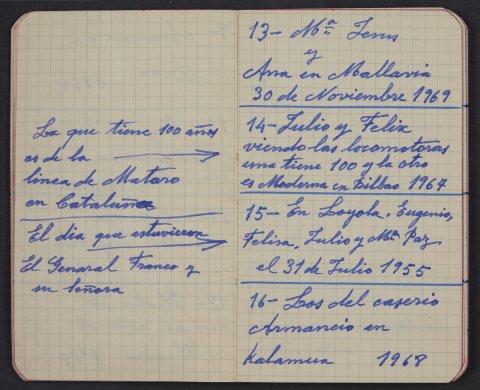 La que tiene 100 años
es de la
linea de Mataro
en Cataluña
El dia que estuvieron
El General Franco y
su Señora
13- Mª Jesus
y
Ana en Mallavia
30 de Noviembre 1969
14- Julio y Felix
viendo las locomotoras
una tiene 100 y la otra
es Moderna en Bilbao 1967
15- En Loyola. Eugenio,
Felisa, Julio y Mª Paz
el 31 de Julio 1955
16- Los del caserio
Armancio en
Kalamua 1968